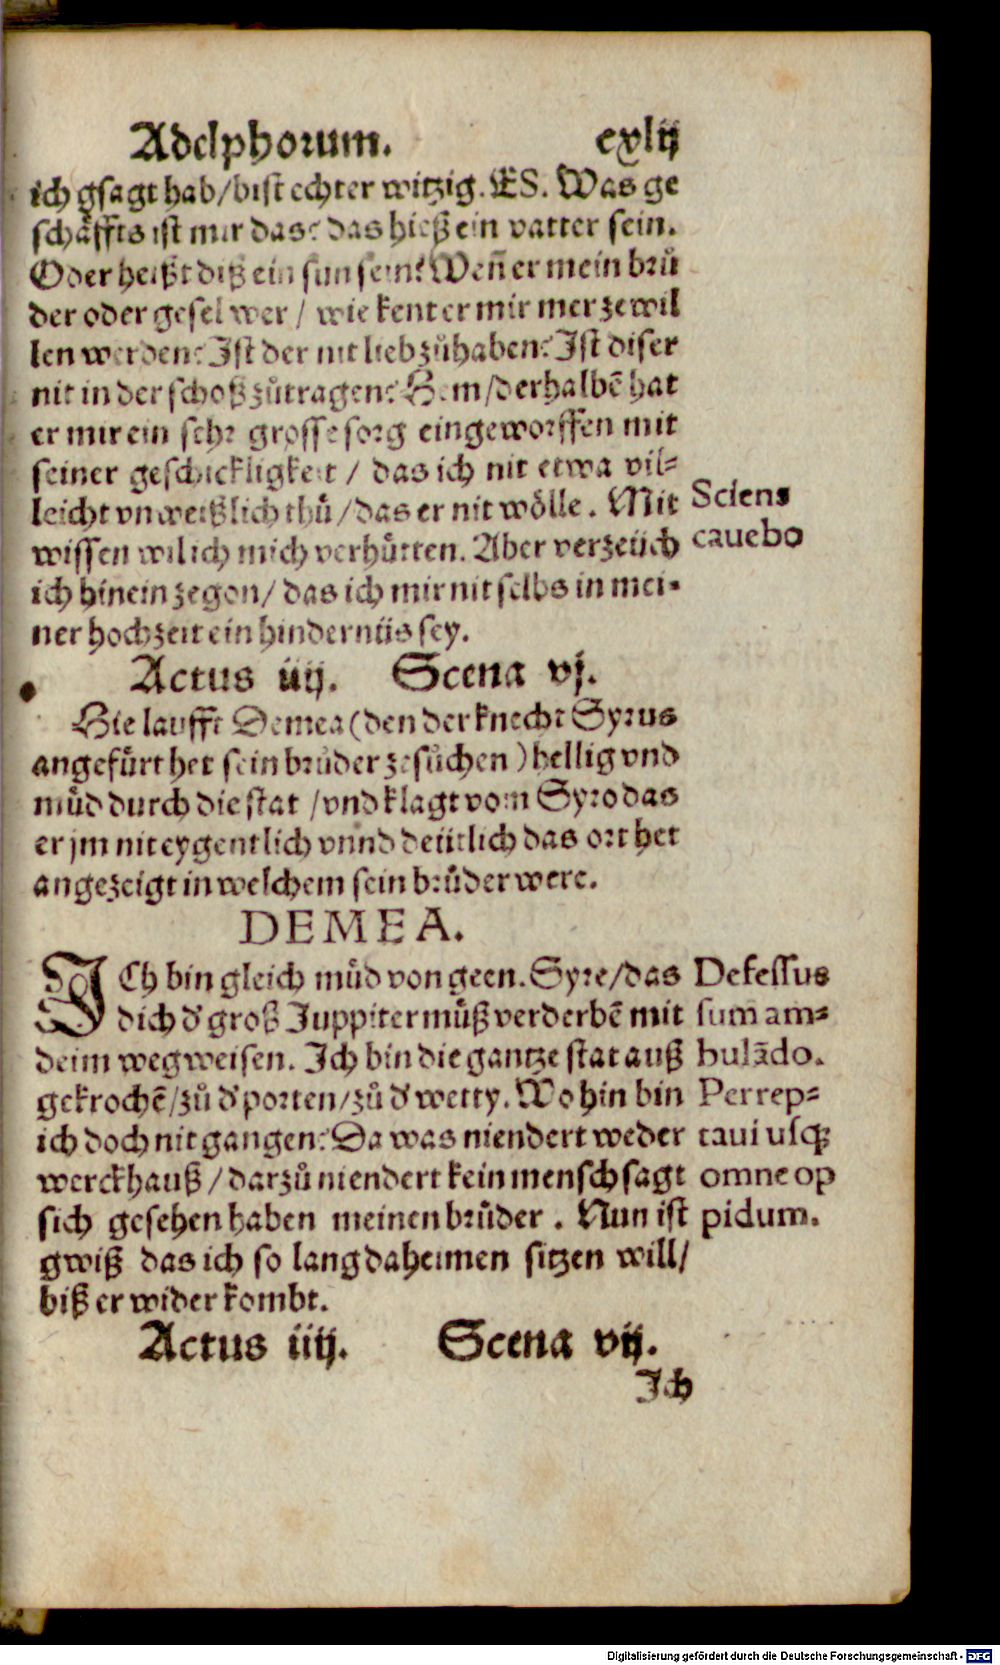 Adelphorum. cxlij
ich gsagt hab/bist echter witzig. ES. Was ge
schäffts ist mir das? das hieß ein vatter sein.
Oder heißt diß ein sun sein? Wen̄ er mein brů
der oder gesel wer / wie kent er mir mer ze wil
len werden? Ist der nit lieb zůhaben? Ist diser
nit in der schoß zůtragen? Hem/derhalbē hat
er mir ein sehr grosse sorg eingeworffen mit
seiner geschickligkeit / das ich nit etwa vil=
leicht vnweißlich thů/das er nit wölle. Mit
wissen wil ich mich verhütten. Aber verzeüch
ich hinein zegon/ das ich mir nit selbs in mei=
ner hochzeit ein hindernüs sey.
Sciens
cauebo
Actus iiij. Scena vj.
Hie laufft Demea (den der knecht Syrus
angefürt het sein brůder zesůchen) hellig vnd
müd durch die stat /vnd klagt vom Syro das
er jm nit eygentlich vnnd deütlich das ort het
angezeigt in welchem sein brůder were.
DEMEA.
ICh bin gleich müd von geen. Syre/das
dich d' groß Juppiter müß verderbē mit
deim wegweisen. Ich bin die gantze stat auß
gekrochē/zů d' porten/zů d' wetty. Wo hin bin
ich doch nit gangen? Da was niendert weder
werckhauß / darzů niendert kein mensch sagt
sich gesehen haben meinen brůder . Nun ist
gwiß das ich so lang daheimen sitzen will/
biß er wider kombt.
Defessus
sum am=
bulādo.
Perrep=
taui usq;
omne op
pidum.
Actus iiij. Scena vij.
Ich
Digitalisierung gefördert durch die Deutsche Forschungsgemeinschaft - DFG